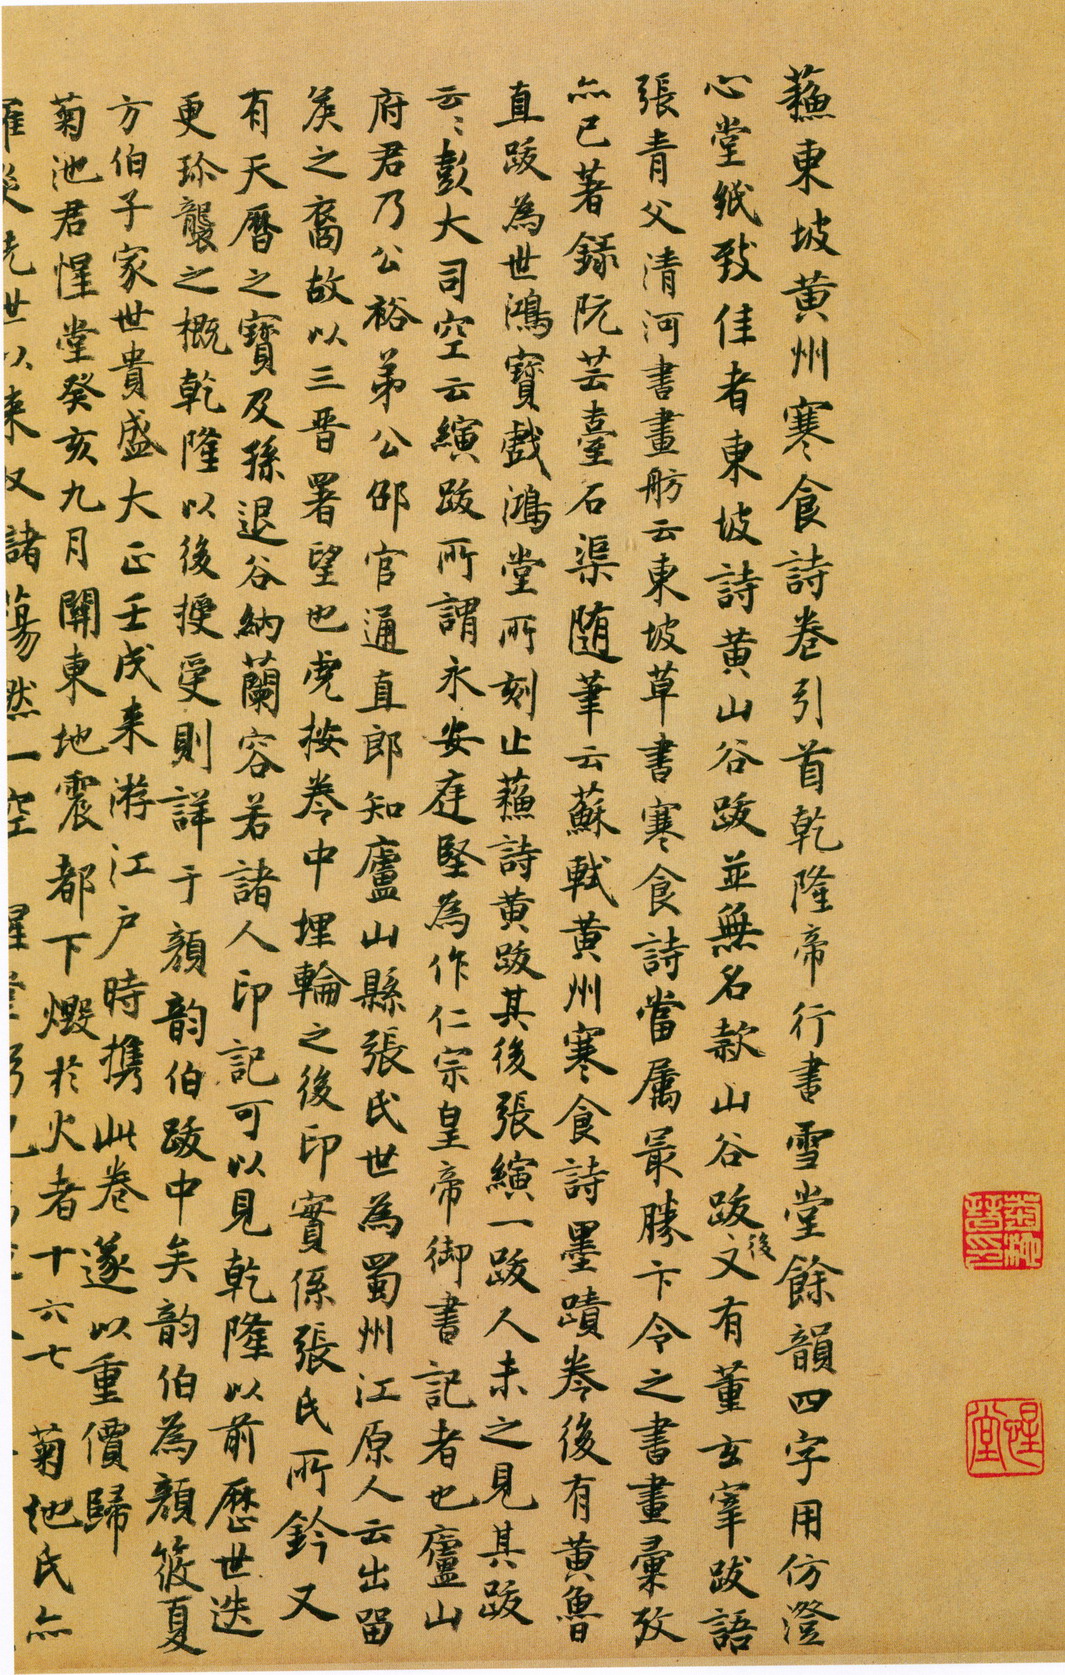 蘓東坡黄州寒食詩卷引首乾隆帝行書雪堂餘韻四字用仿澄
心堂紙致佳者東坡詩黄山谷跋並無名款山谷跋後又有董玄宰跋語
張青父清河書畫舫云東坡草書寒食詩當属㝡勝卞令之書畫彙攷
亦已著錄阮芸臺石渠随筆云蘇軾黄州寒食詩墨蹟卷後有黄魯
直跋為世鴻寶戲鴻堂所刻止蘓詩黄跋其後張縯一跋人未之見其跋
云云彭大司空云縯跋所謂永安庭堅為作仁宗皇帝御書記者也廬山
府君乃公裕弟公邵官通直郎知廬山縣張氏世為蜀州江原人云出留
矦之裔故以三晋署望也虎按卷中埋輪之後印實係張氏所鈐又
有天曆之寶及孫退谷納蘭容若諸人印記可以見乾隆以前歴世迭
更珎襲之概乾隆以後授受則詳于顏韵伯跋中矣韵伯為顏筱夏
方伯子家世貴盛大正壬戌来游江户時携此卷遂以重價歸
菊池君惺堂癸亥九月關東地震都下燬於火者十六七菊池氏亦
罹災先世以来収諸蕩然一空
菊池晉印
惺堂